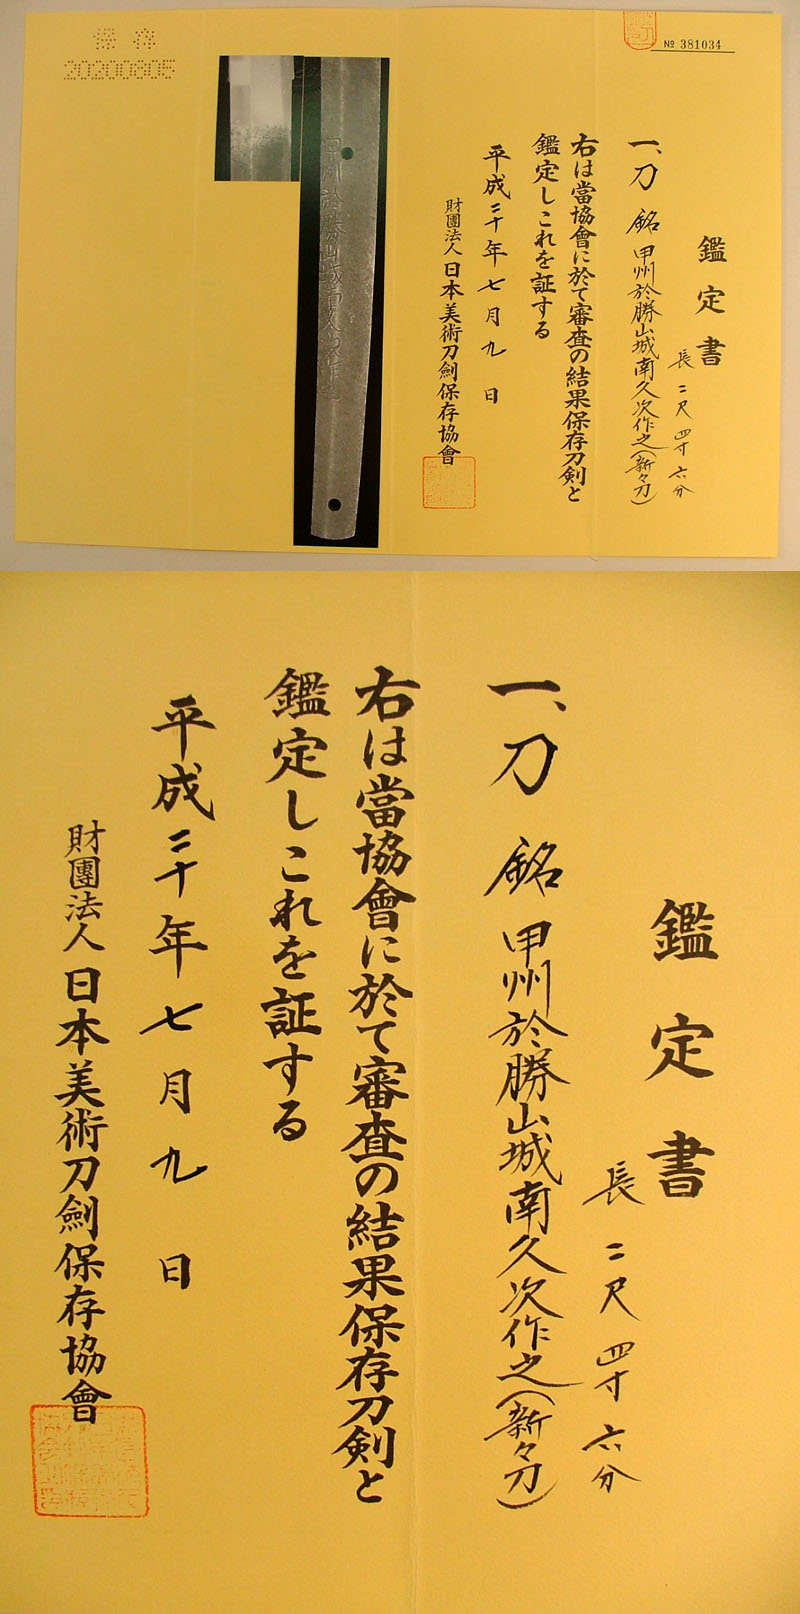 保存
20200805
№ 381034
鑑定書
長二尺四寸六分
一、刀 銘 甲州於勝山城南久次作之(新々刀)
右は當協會に於て審査の結果保存刀剣と
鑑定しこれを証する
平成二十年七月九日
財團法人日本美術刀劍保存協會
甲州於勝山城南久次作之
鑑定書
長二尺四寸六分
一、刀 銘 甲州於勝山城南久次作之(新々刀)
右は當協會に於て審査の結果保存刀剣と
鑑定しこれを証する
平成二十年七月九日
財團法人日本美術刀劍保存協會